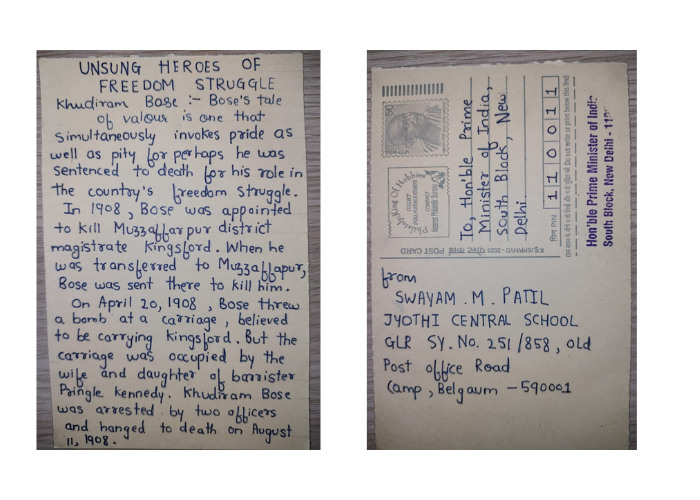 UNSUNG HEROES OF
FREEDOM STRUGGLE
Khudiram Bose :- Bose's tale
of valour is one that
simultaneously invokes pride as
well as pity for perhaps he was
sentenced to death for his role in
the country's freedom struggle.
In 1908, Bose was appointed
to kill Muzzaffarpur district
magistrate Kingsford. When he
was transferred to Muzzaffapur,
Bose was sent there to kill him.
On April 20, 1908, Bose threw
a bomb at a carriage, believed
to be carrying kingsford. But the
carriage was occupied by the
wife and daughter of barrister
Pringle kennedy. Khudiram Bose
was arrested by two officers
and hanged to death on August
11, 1908.
POST CARD
50
Philately King Of Hobbies
To, Hon'ble Prime
Minister of India,
South Block, New
Delhi.
पिन PIN
110011
Do not write or print below this line
Hon'ble Prime Minister of India
South Block, New Delhi - 110
from
SWAYAM . M . PATIL
JYOTHI CENTRAL SCHOOL
GLR SY. No. 251/858, old
Post office Road
Camp, Belgaum - 590001